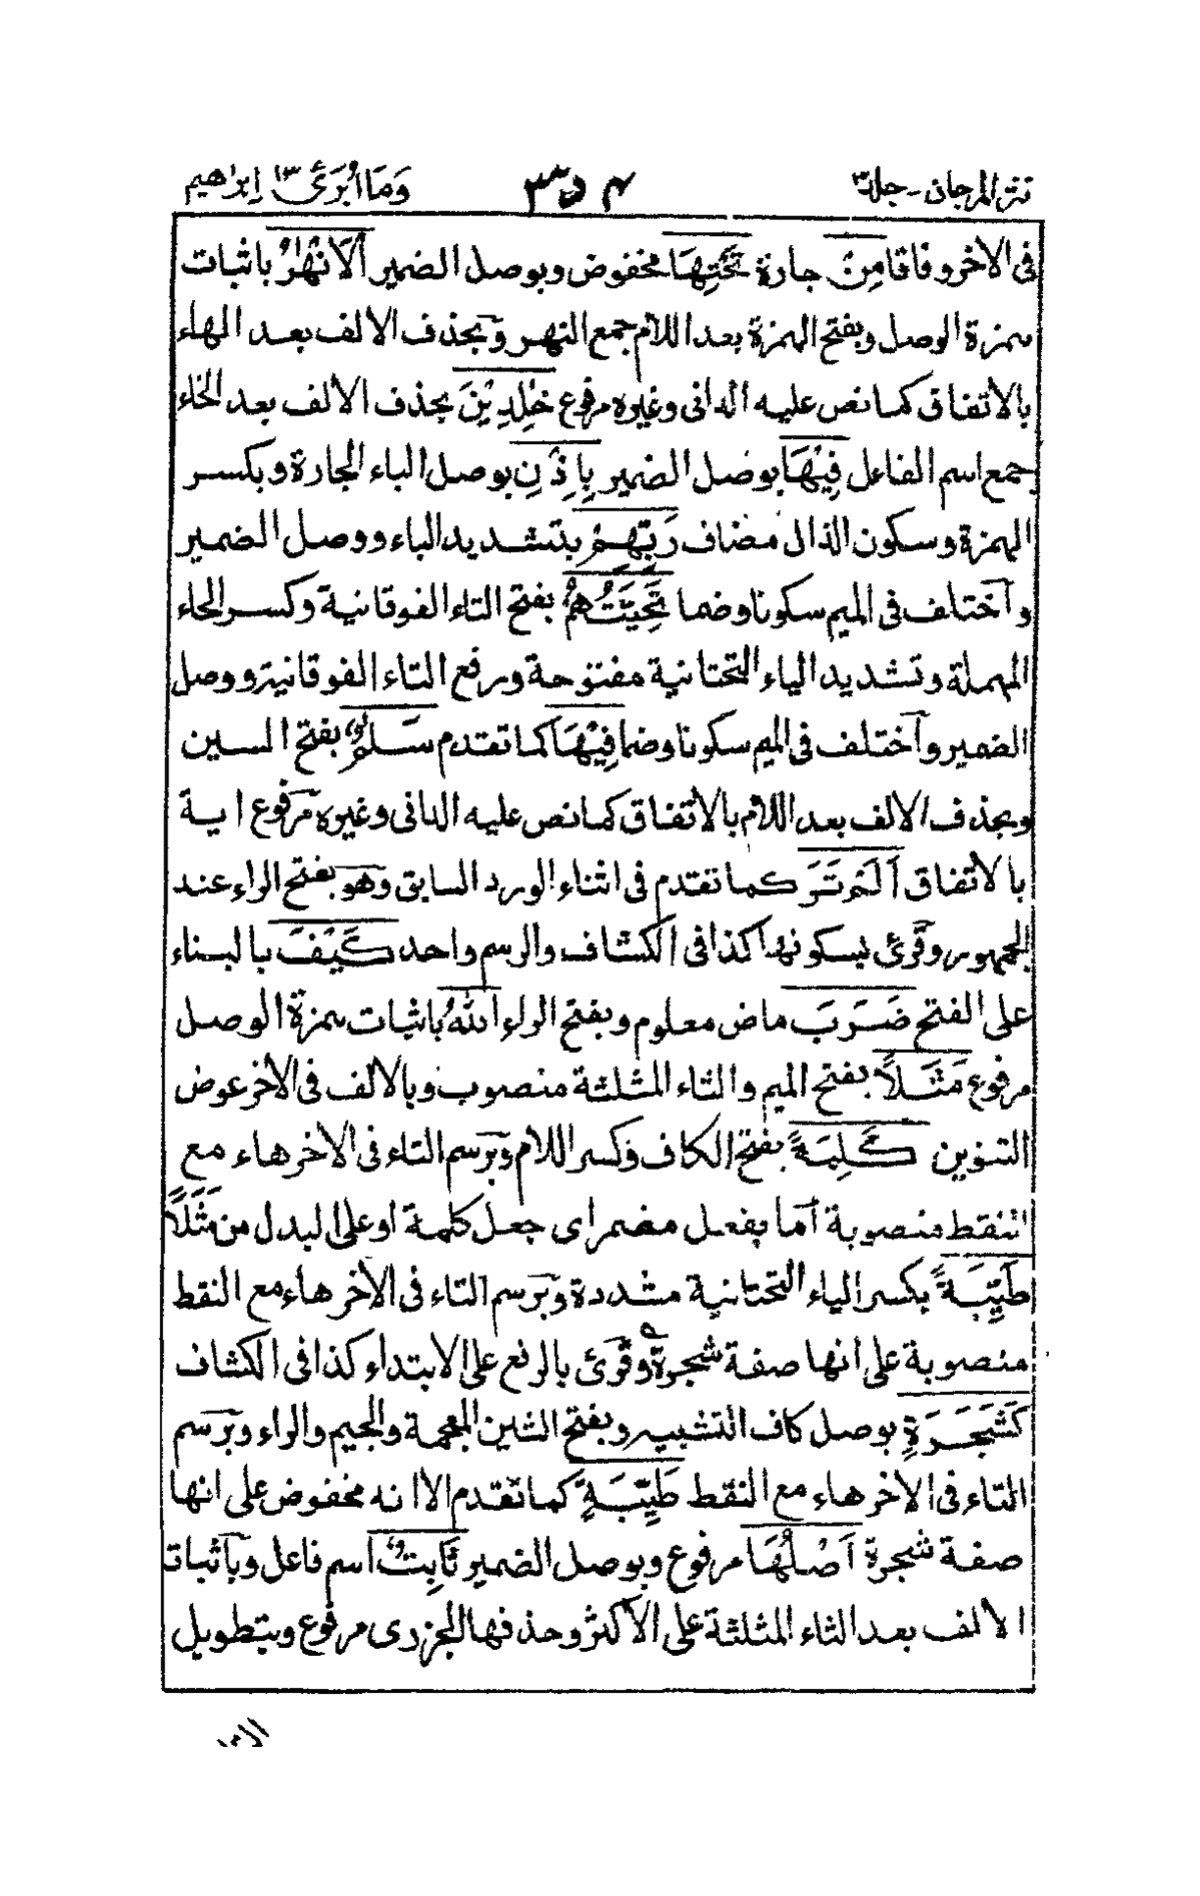 نثر المرجان - جلد ٣ ٣٥٤ وَمَا اُبَرِّئُ ١٣ اِبْرٰهيم
فى الاٰخر وفاقا مِنْ جارة تَحْتِهَا مخفوض وبوصل الضمير اَلْاَنْهٰرُ باثبات
همزة الوصل وبفتح الهمزة بعد اللام جمع النهر وبحذف الالف بعد الهاء
بالاتفاق كما نص عليه الدانى وغيره مرفوع خٰلِدِيْنَ بحذف الالف بعد الخاء
جمع اسم الفاعل فِيْهَا بوصل الضمير بِاِذْنِ بوصل الباء الجارة وبكسر
الهمزة وسكون الذال مضاف رَبِّهِمْ بتشديد الباء ووصل الضمير
وآختلف فى الميم سكونا وضما تَحِيَّتُهُمْ بفتح التاء الفوقانية وكسر الحاء
المهملة وتشديد الياء التحتانية مفتوحة ورفع التاء الفوقانية ووصل
الضمير وآختلف فى الميم سكونا وضما فِيْهَا كما تقدم سَلٰمٌ بفتح السين
وبحذف الالف بعد اللام بالاتفاق كما نص عليه الدانى وغيره مرفوع اية
بالاتفاق اَلَمْ تَرَ كما تقدم فى اثناء الورد السابق وهو بفتح الراء عند
الجمهور وقرئ بسكونها كذا فى الكشاف والرسم واحد كَيْفَ بالبناء
على الفتح ضَرَبَ ماض معلوم وبفتح الراء اَللّٰهُ باثبات همزة الوصل
مرفوع مَثَلًا بفتح الميم والثاء المثلثة منصوب وبالالف فى الاٰخر عوض
التنوين كَلِمَةً بفتح الكاف وكسر اللام وبرسم التاء فى الاٰخر هاء مع
النقط منصوبة آما بفعل مضمر اى جعل كلمة او على البدل من مَثَلًا
طَيِّبَةً بكسر الياء التحتانية مشددة وبرسم التاء فى الاٰخر هاء مع النقط
منصوبة على انها صفة شجرة وقرئ بالرفع على الابتداء كذا فى الكشاف
كَشَجَرَةٍ بوصل كاف التشبيه وبفتح الشين المعجمة والجيم والراء وبرسم
التاء فى الاٰخر هاء مع النقط طَيِّبَةٍ كما تقدم الا انه مخفوض على انها
صفة شجرة اَصْلُهَا مرفوع وبوصل الضمير ثَابِتٌ اسم فاعل وبآثبات
الالف بعد الثاء المثلثة على الاكثر وحذفها الجزرى مرفوع وبتطويل